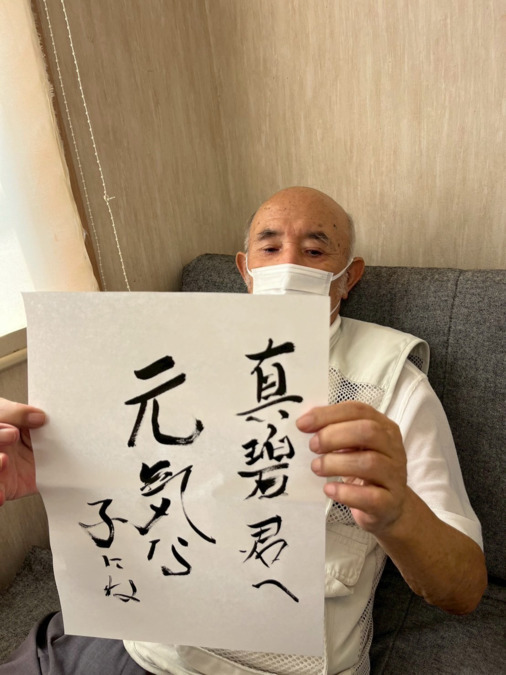 真碧君へ
元気な
子にね